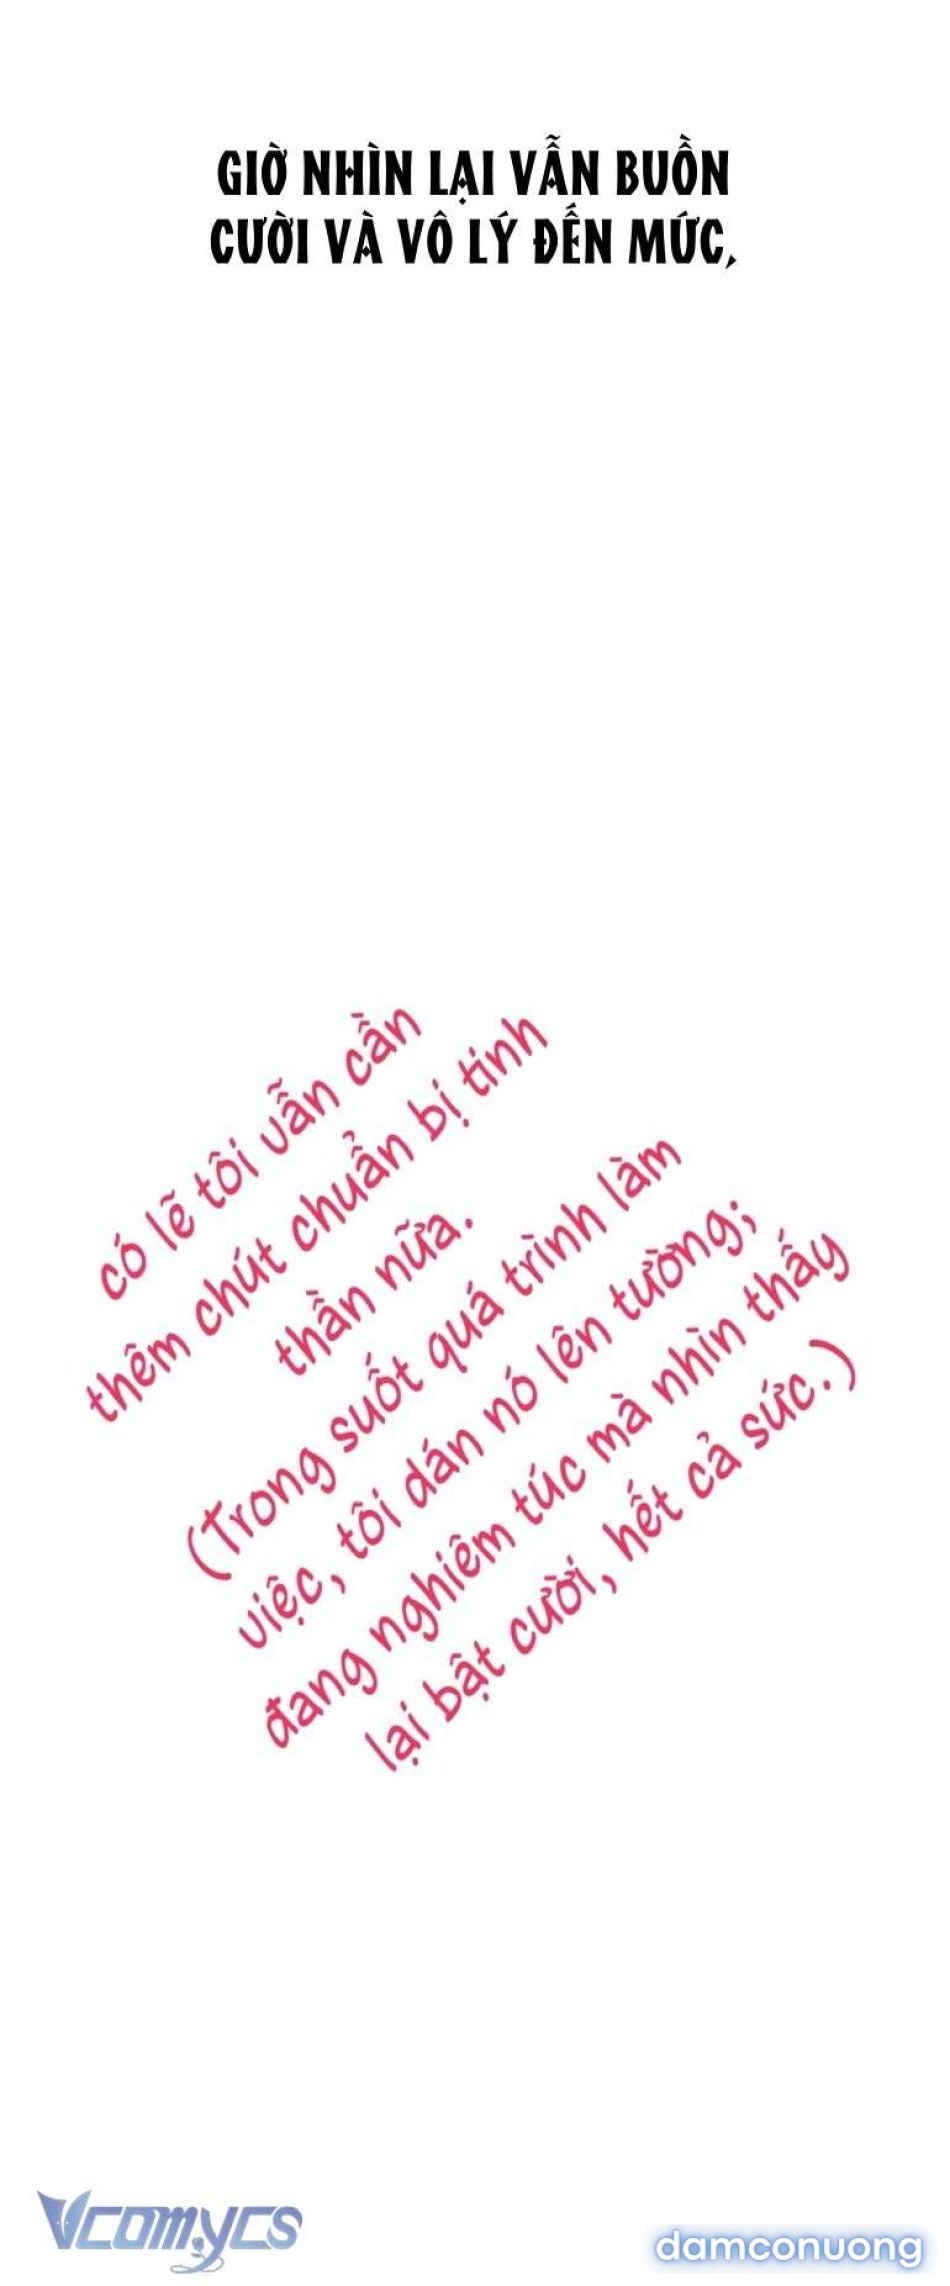 GIỜ NHÌN LẠI VẪN BUỒN
CƯỜI VÀ VÔ LÝ ĐẾN MỨC,
có lẽ tôi vẫn cần
thêm chút chuẩn bị tinh
thần nữa.
(Trong suốt quá trình làm
việc, tôi dán nó lên tường;
đang nghiêm túc mà nhìn thấy
lại bật cười, hết cả sức.)
Vcomycs
damconuong